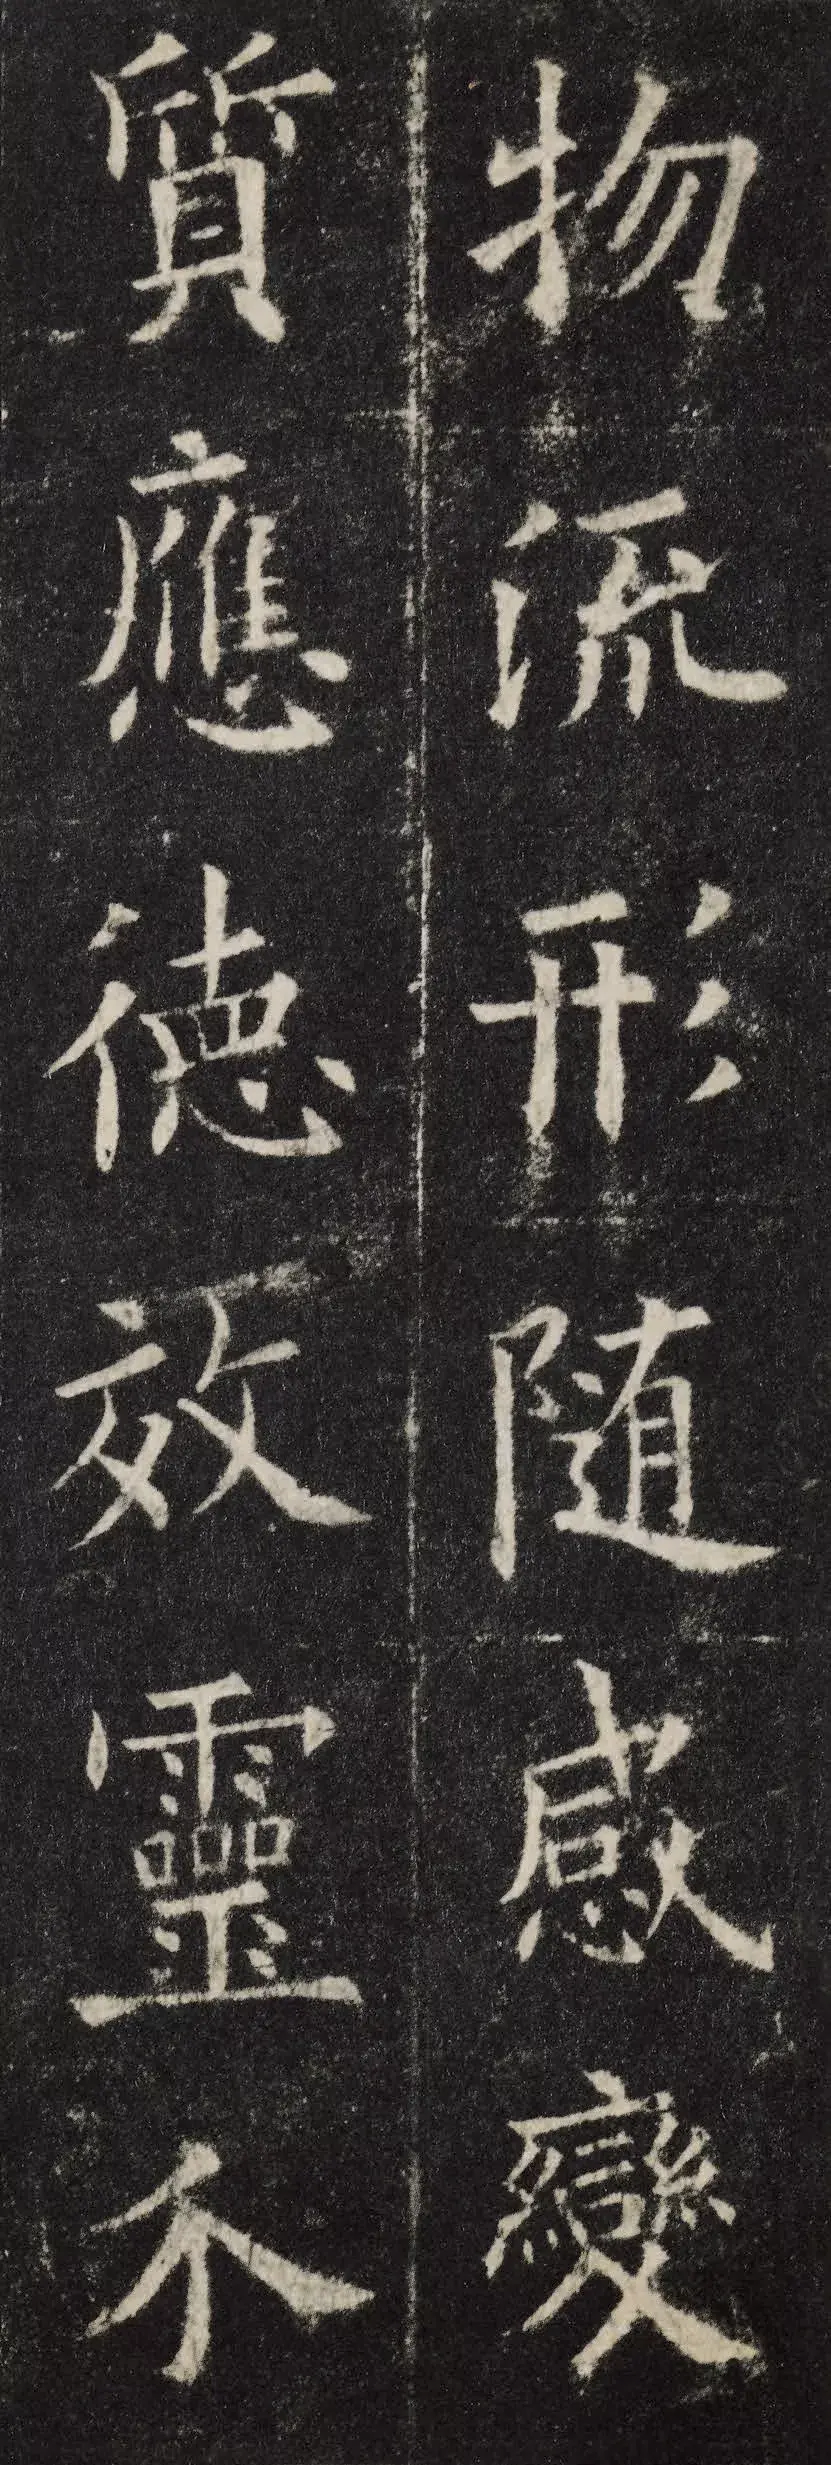 物流形随感變
質應德效靈不